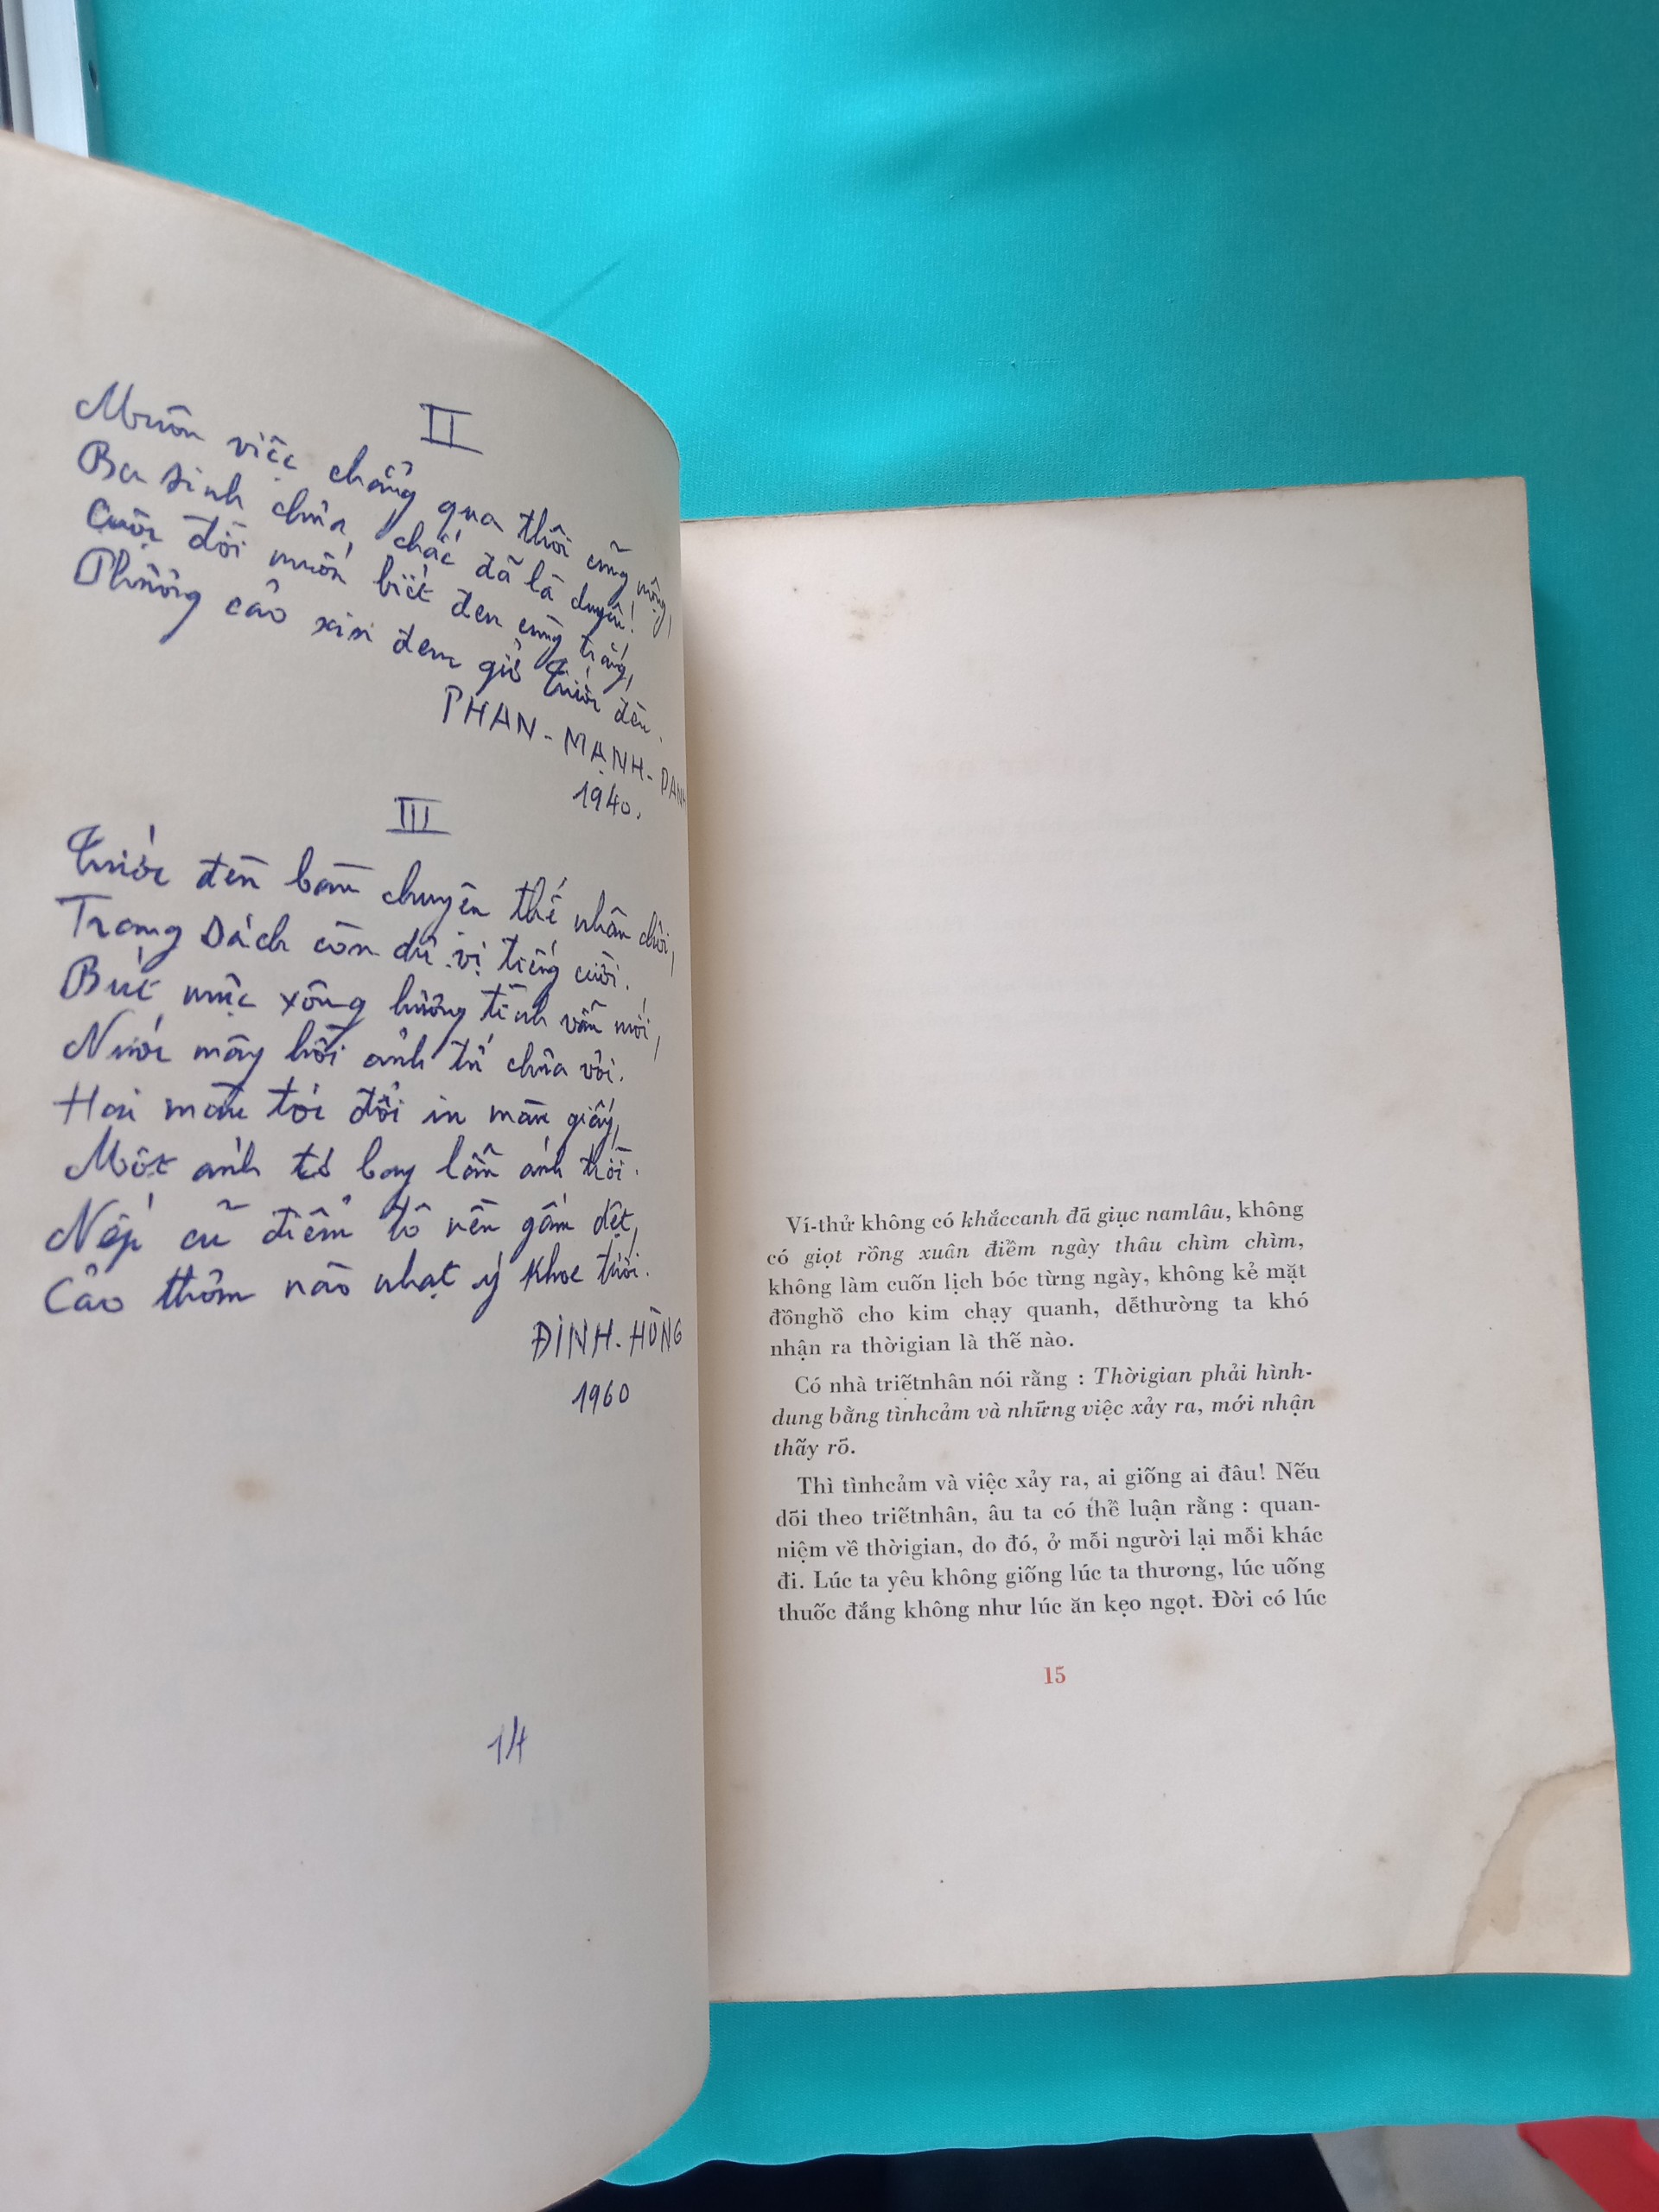 II
Muôn việc chẳng qua thôi cũng mộng,
Ba sinh chửa chắc đã là duyên!
Cuộc đời muốn biết đen cùng trắng,
Phương cảo xin đem giở trước đèn.
PHAN-MẠNH-DANH
1940.
III
Trước đèn bàn chuyện thế nhân chơi,
Trang sách còn dư vị tiếng cười.
Bút mực xông hương tình vẫn mới,
Nước mây hồi ảnh tứ chưa vơi.
Hai màu tóc đổi in màu giấy,
Một ánh tơ bay lẫn ánh trời.
Nếp cũ điểm tô nền gấm dệt,
Cảo thơm nào nhạt ý khoe tươi.
ĐÌNH-HỒNG
1960
14
Ví-thử không có khắccanh đã giục namlâu, không
có giọt rồng xuân điểm ngày thâu chìm chìm,
không làm cuốn lịch bóc từng ngày, không kẻ mặt
đồnghồ cho kim chạy quanh, dễthường ta khó
nhận ra thờigian là thế nào.
Có nhà triếtnhân nói rằng : Thờigian phải hình-
dung bằng tìnhcảm và những việc xảy ra, mới nhận
thấy rõ.
Thì tìnhcảm và việc xảy ra, ai giống ai đâu! Nếu
dõi theo triếtnhân, âu ta có thể luận rằng : quan-
niệm về thờigian, do đó, ở mỗi người lại mỗi khác
đi. Lúc ta yêu không giống lúc ta thương, lúc uống
thuốc đắng không như lúc ăn kẹo ngọt. Đời có lúc
15